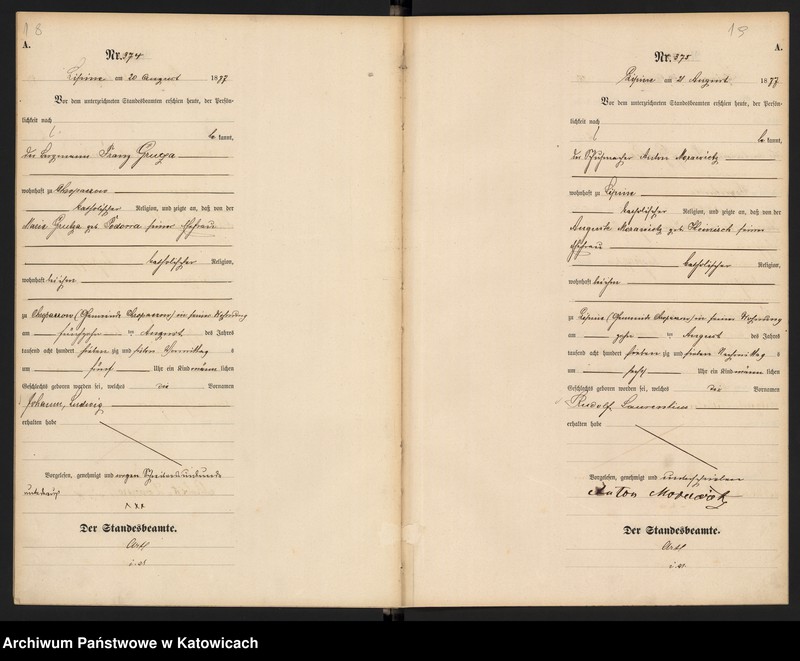 18
A.
Nr. 374
Lipine am 20 August 1877
Vor dem unterzeichneten Standesbeamten erschien heute, der Persön-
lichkeit nach
be kannt,
der Bergmann Franz Grutza
wohnhaft zu Chropaczow
katholischer Religion, und zeigte an, daß von der
Marie Grutza geb. seiner Ehefrau
katholischer Religion,
wohnhaft bei ihm
zu Chropaczow (Gemeinde Chropaczow) in seiner Wohnung
am fünfzehn ten August des Jahres
tausend acht hundert sieben zig und sieben Vormittag s
um fünf Uhr ein Kind männ lichen
Geschlechts geboren worden sei, welches die Vornamen
Johann, Ludwig
erhalten habe
Vorgelesen, genehmigt und wegen Schreibensunkunde
unterkreuzt
xxx
Der Standesbeamte.
i. V.
19
A.
Nr. 375
Lipine am 21 August 1877
Vor dem unterzeichneten Standesbeamten erschien heute, der Persön-
lichkeit nach
be kannt,
der Schuhmacher Anton Morawietz
wohnhaft zu Lipine
katholischer Religion, und zeigte an, daß von der
Auguste Morawietz geb. Heinisch seiner
Ehefrau
katholischer Religion,
wohnhaft bei ihm
zu Lipine (Gemeinde Chropaczow) in seiner Wohnung
am zehn ten August des Jahres
tausend acht hundert sieben zig und sieben Nachmittag s
um sechs Uhr ein Kind männ lichen
Geschlechts geboren worden sei, welches die Vornamen
Rudolf Laurentius
erhalten habe
Vorgelesen, genehmigt und unterschrieben
Anton Morawietz
Der Standesbeamte.
i. V.
Archiwum Państwowe w Katowicach